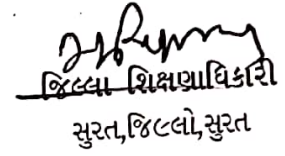 જિલ્લા શિક્ષણાધિકારી
સુરત,જિલ્લો,સુરત